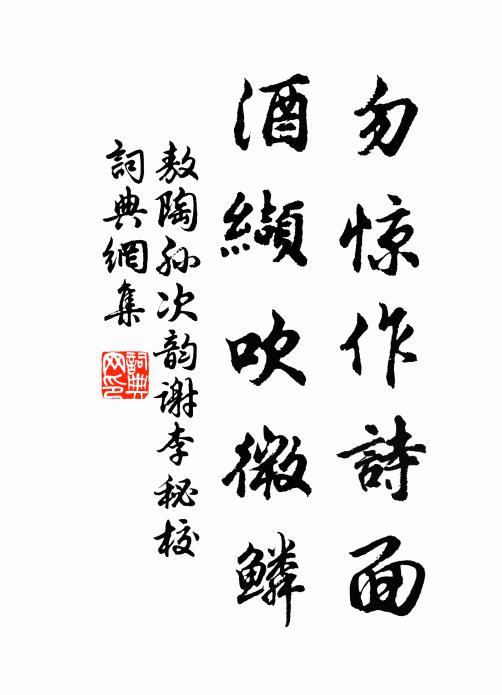 勿惊作詩面
酒纈吹微鱗
敖陶孙次韵谢李秘校
詞典網集
詞典
网印